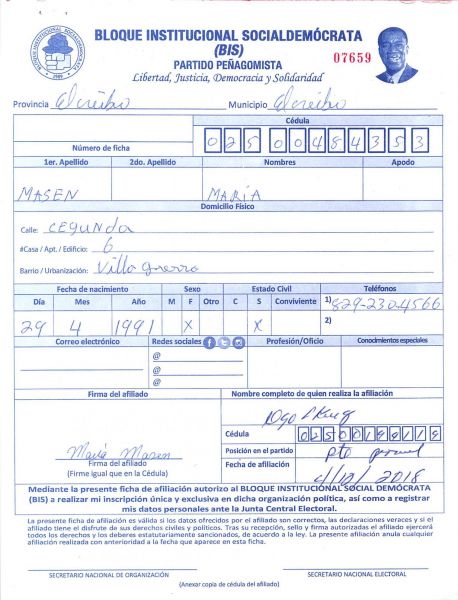 BLOQUE INSTITUCIONAL SOCIALDEMÓCRATA
(BIS)
PARTIDO PEÑAGOMISTA
07659
Libertad, Justicia, Democracia y Solidaridad
Provincia El ceibo Municipio El ceibo
Cédula
Número de ficha 025 0048435 3
1er. Apellido 2do. Apellido Nombres Apodo
MASEN MARÍA
Domicilio Físico
Calle: CEGUNDA
#Casa / Apt. / Edificio: 6
Barrio / Urbanización: Villa Guerro
Fecha de nacimiento Sexo Estado Civil Teléfonos
Día Mes Año M F Otro C S Conviviente 1) 829-230-4566
29 4 1991 X X 2)
Correo electrónico Redes sociales Profesión/Oficio Conocimientos especiales
@
@
@
Firma del afiliado Nombre completo de quien realiza la afiliación
Cédula
Posición en el partido
María Masen
Firma del afiliado
(Firme igual que en la Cédula)
Fecha de afiliación 4/12/2018
Mediante la presente ficha de afiliación autorizo al BLOQUE INSTITUCIONAL SOCIAL DEMÓCRATA
(BIS) a realizar mi inscripción única y exclusiva en dicha organización política, así como a registrar
mis datos personales ante la Junta Central Electoral.
La presente ficha de afiliación es válida si los datos ofrecidos por el afiliado son correctos, las declaraciones veraces y si el
afiliado tiene el disfrute de sus derechos civiles y políticos. Tras su recepción, sello y firma autorizadas el afiliado ejercerá
todos los derechos y los deberes estatutariamente sancionados, de acuerdo a la ley. La presente afiliación anula cualquier
afiliación realizada con anterioridad a la fecha que aparece en esta ficha.
SECRETARIO NACIONAL DE ORGANIZACIÓN SECRETARIO NACIONAL ELECTORAL
(Anexar copia de cédula del afiliado)